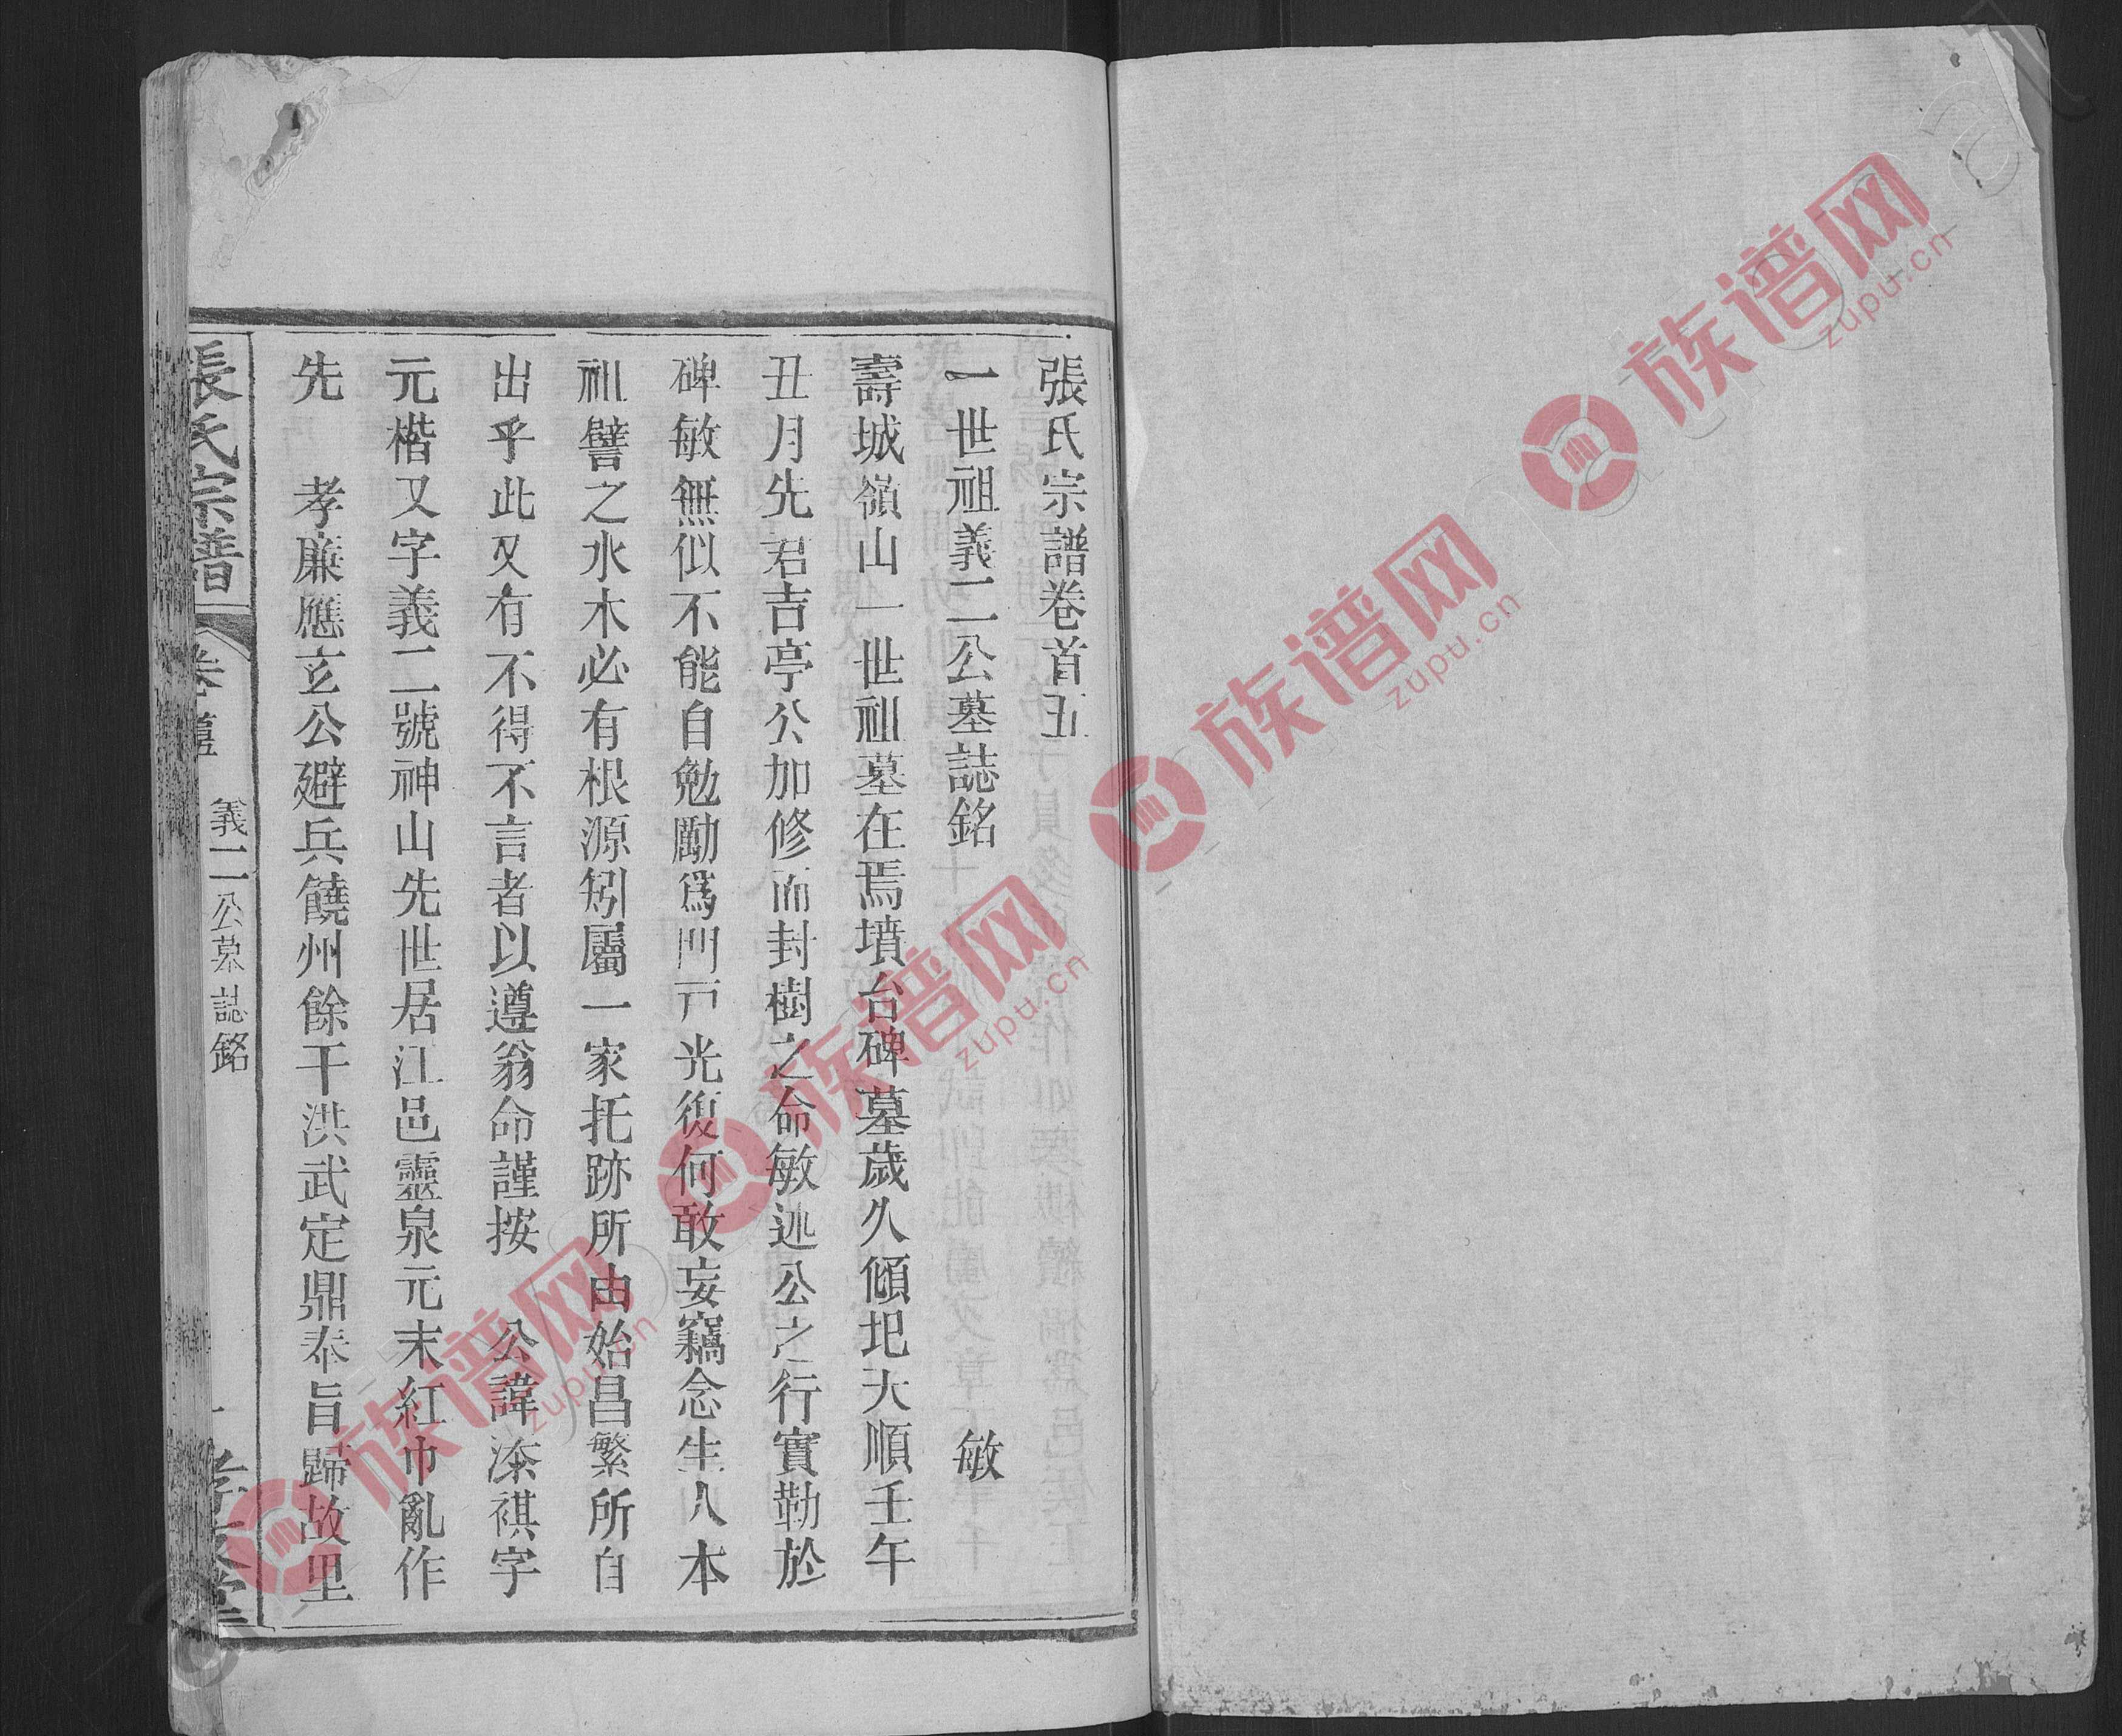 張氏宗譜卷首五
一世祖義二公墓誌銘
敏
壽城嶺山一世祖墓在焉墳台碑墓歲久傾圯大順壬午
丑月先君吉亭公加修而封樹之命敏述公之行實勒於
碑敏無似不能自勉勵爲門戸光復何敢妄竊念生人本
祖譬之水木必有根源矧屬一家托跡所由始昌繁所自
出乎此又有不得不言者以遵翁命謹按 公諱漆祺字
元楷又字義二號神山先世居江邑靈泉元末紅巾亂作
先 孝廉應玄公避兵饒州餘干洪武定鼎奉旨歸故里
張氏宗譜
卷首
義二公墓誌銘
一
孝友堂
族谱网
zupu.cn
族谱网
zupu.cn
族谱网
zupu.cn
族谱网
zupu.cn